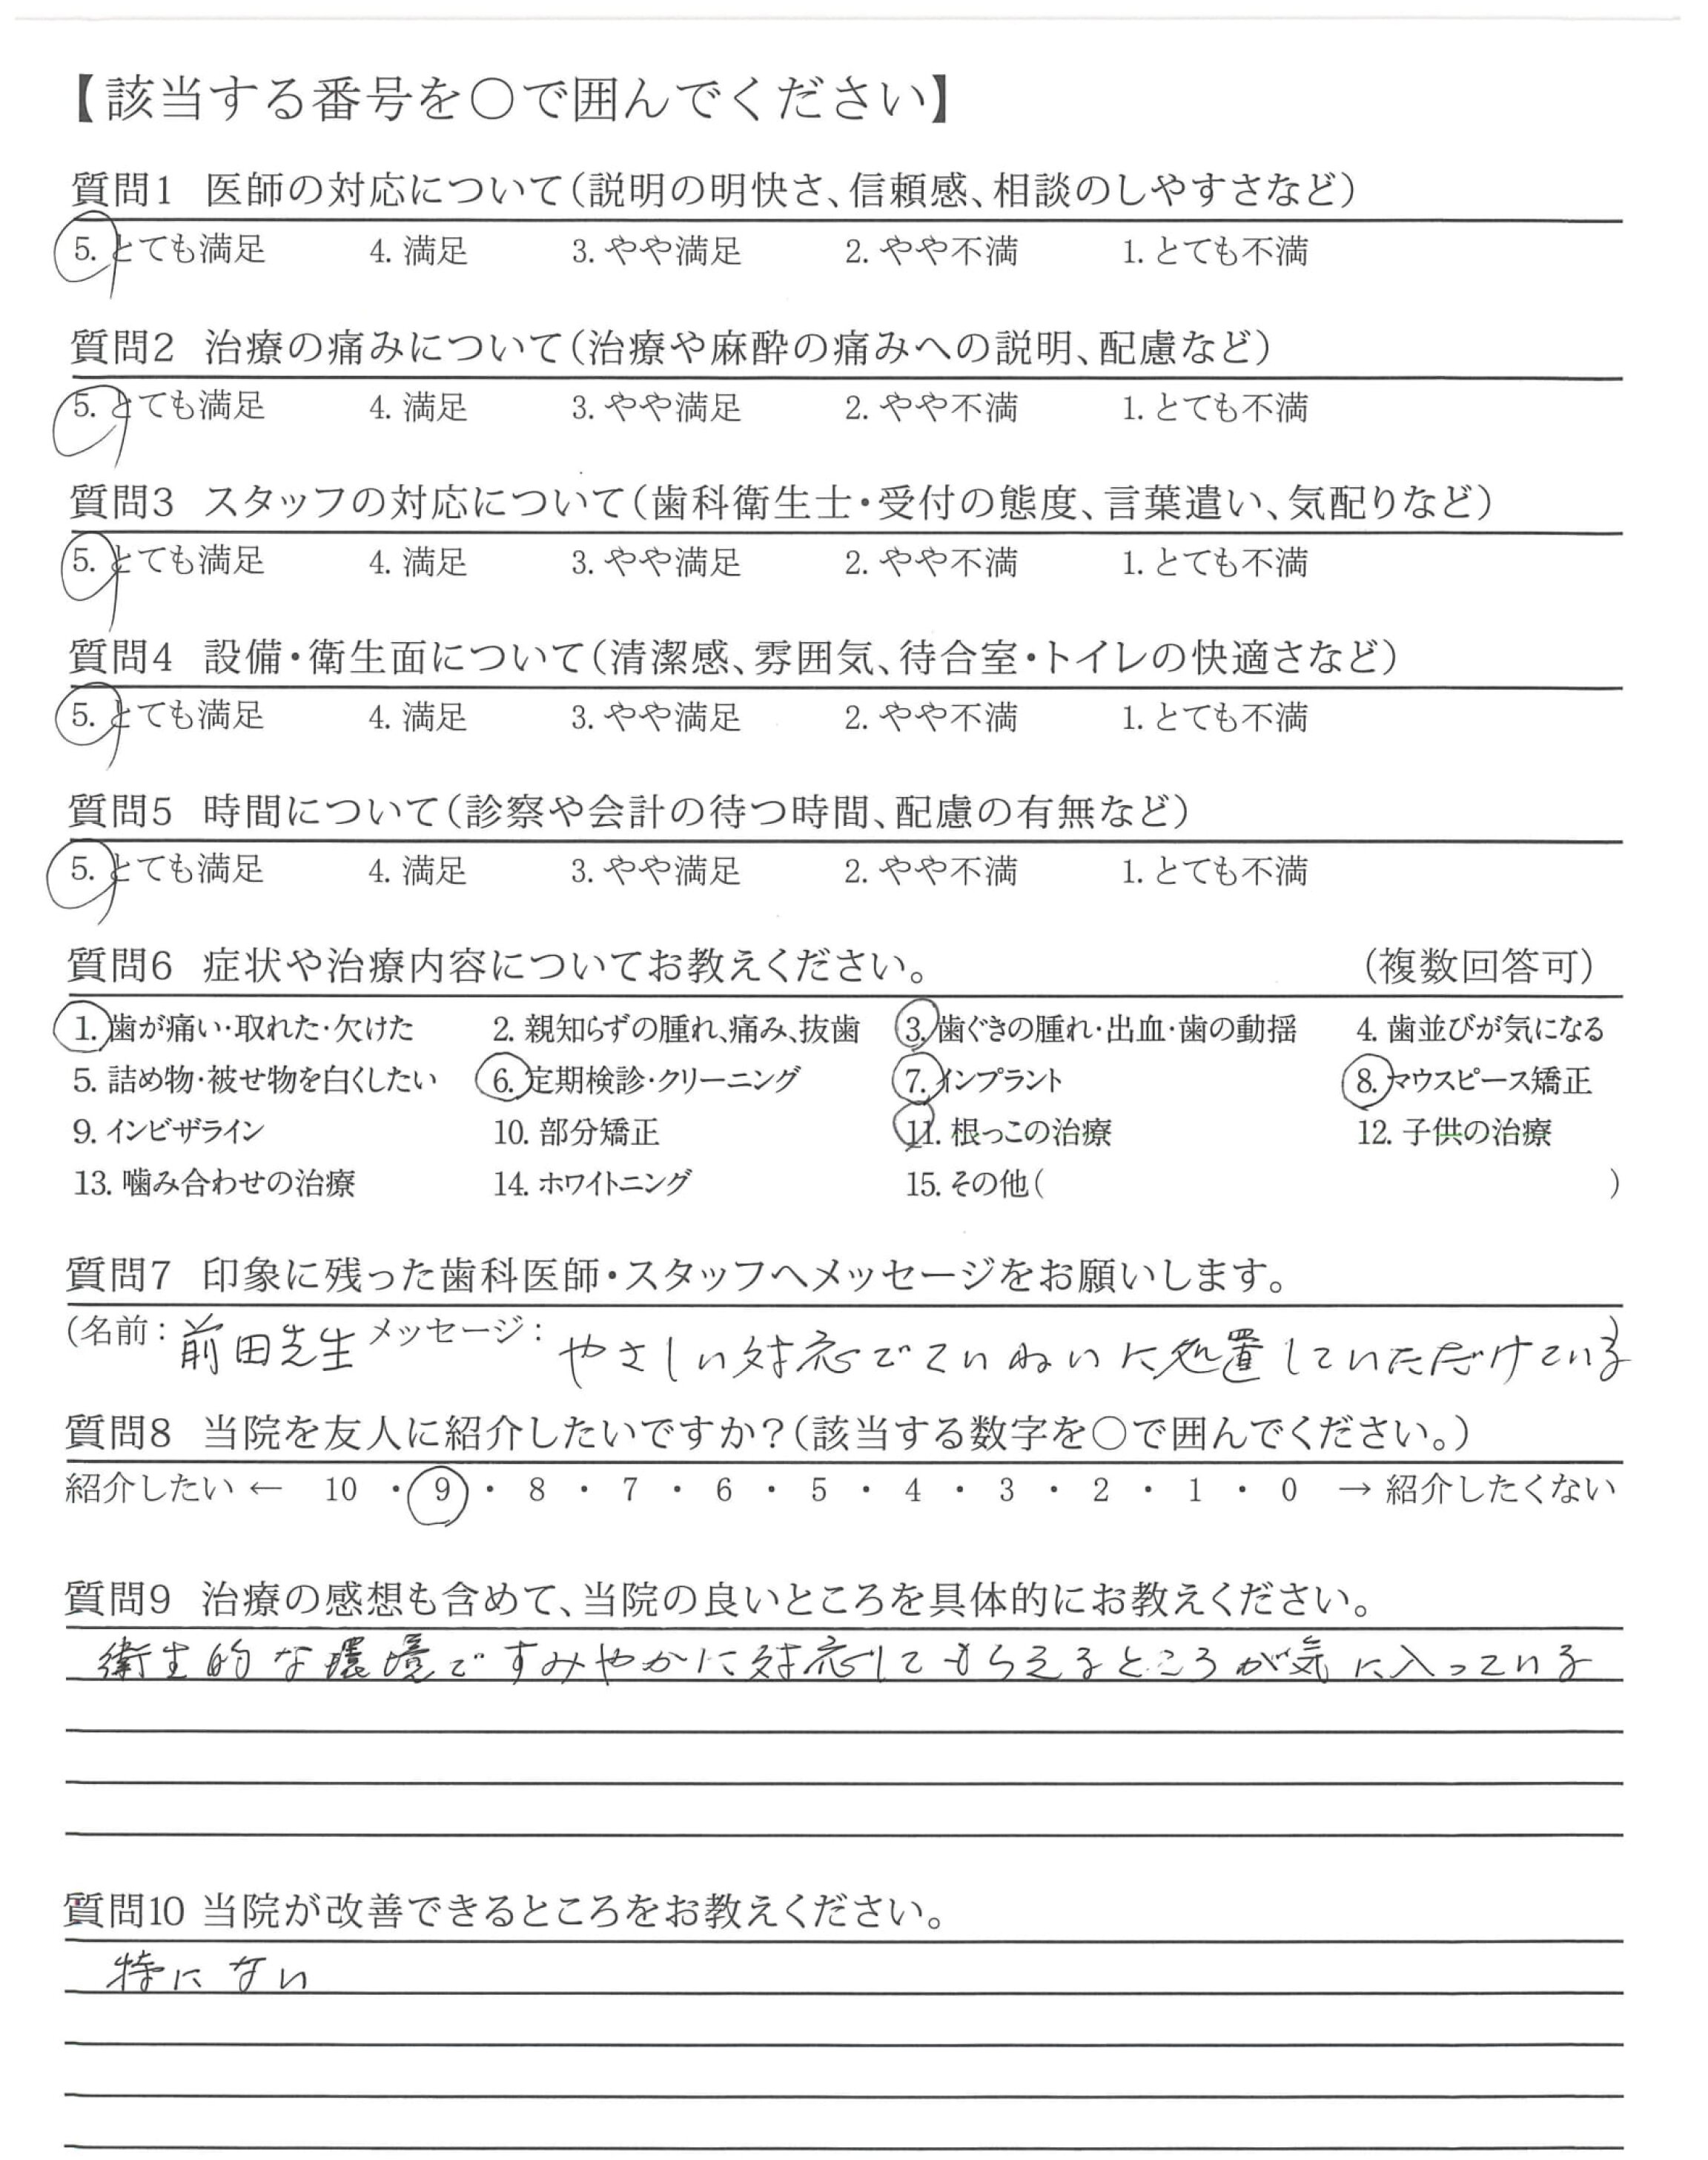 【該当する番号を〇で囲んでください】
質問1 医師の対応について（説明の明快さ、信頼感、相談のしやすさなど）
5. とても満足 4. 満足 3. やや満足 2. やや不満 1. とても不満
質問2 治療の痛みについて（治療や麻酔の痛みへの説明、配慮など）
5. とても満足 4. 満足 3. やや満足 2. やや不満 1. とても不満
質問3 スタッフの対応について（歯科衛生士・受付の態度、言葉遣い、気配りなど）
5. とても満足 4. 満足 3. やや満足 2. やや不満 1. とても不満
質問4 設備・衛生面について（清潔感、雰囲気、待合室・トイレの快適さなど）
5. とても満足 4. 満足 3. やや満足 2. やや不満 1. とても不満
質問5 時間について（診察や会計の待つ時間、配慮の有無など）
5. とても満足 4. 満足 3. やや満足 2. やや不満 1. とても不満
質問6 症状や治療内容についてお教えください。 （複数回答可）
1. 歯が痛い・取れた・欠けた 2. 親知らずの腫れ、痛み、抜歯 3. 歯ぐきの腫れ・出血・歯の動揺 4. 歯並びが気になる
5. 詰め物・被せ物を白くしたい 6. 定期検診・クリーニング 7. インプラント 8. マウスピース矯正
9. インビザライン 10. 部分矯正 11. 根っこの治療 12. 子供の治療
13. 噛み合わせの治療 14. ホワイトニング 15. その他（ ）
質問7 印象に残った歯科医師・スタッフへメッセージをお願いします。
（名前：前田先生 メッセージ：やさしい対応でていねいに処置していただけている）
質問8 当院を友人に紹介したいですか？（該当する数字を〇で囲んでください。）
紹介したい ← 10 ・ 9 ・ 8 ・ 7 ・ 6 ・ 5 ・ 4 ・ 3 ・ 2 ・ 1 ・ 0 → 紹介したくない
質問9 治療の感想も含めて、当院の良いところを具体的にお教えください。
衛生的な環境ですみやかに対応してもらえるところが気に入っている
質問10 当院が改善できるところをお教えください。
特にない